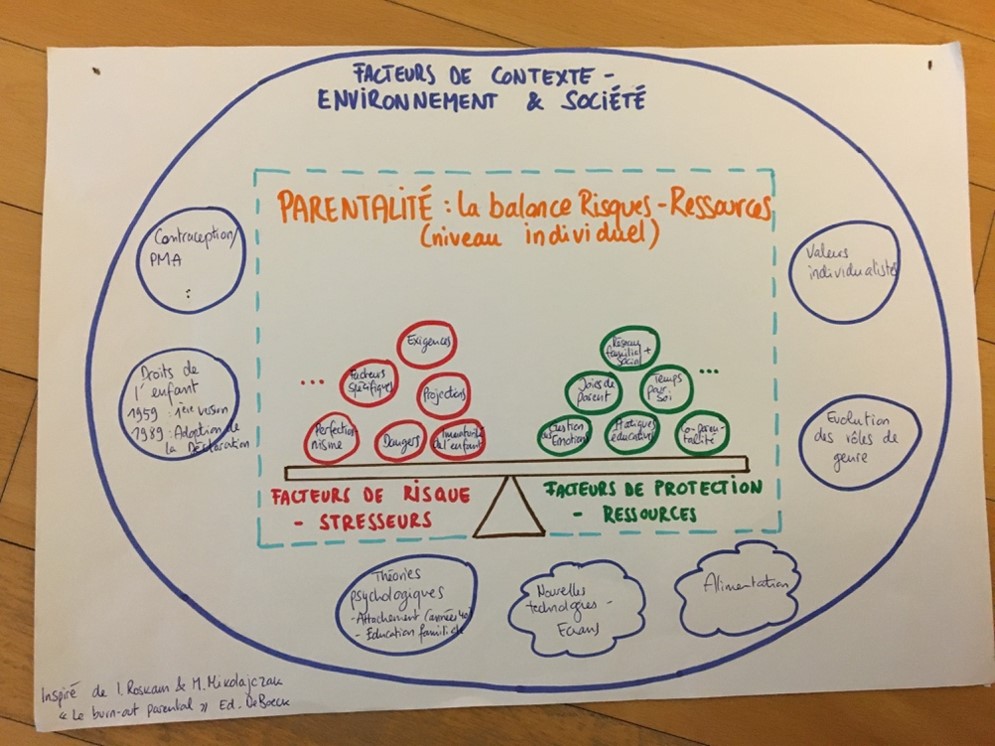 FACTEURS DE CONTEXTE -
ENVIRONNEMENT & SOCIÉTÉ
PARENTALITÉ : La balance Risques - Ressources
(niveau individuel)
Contraception/
PMA
:
Droits de
l'enfant
1959 : 1ère version
1989 : Adoption de
la Déclaration
Valeurs
individualistes
Evolution
des rôles de
genre
Exigences
...
Facteurs
spécifiques
Projections
Perfection-
nisme
Dangers
Immaturité
de l'enfant
Réseau
familial +
social
Joies de
parent
Temps
pour soi
...
Gestion
des Emotions
Pratiques
éducatives
Co-paren-
talité
FACTEURS DE RISQUE
- STRESSEURS
FACTEURS DE PROTECTION
- RESSOURCES
Théories
psychologiques
- Attachement (années 40)
- Education familiale
Nouvelles
technologies -
Ecrans
Alimentation
Inspiré de I. Roskam & M. Mikolajczak
« Le burn-out parental » Ed. DeBoeck